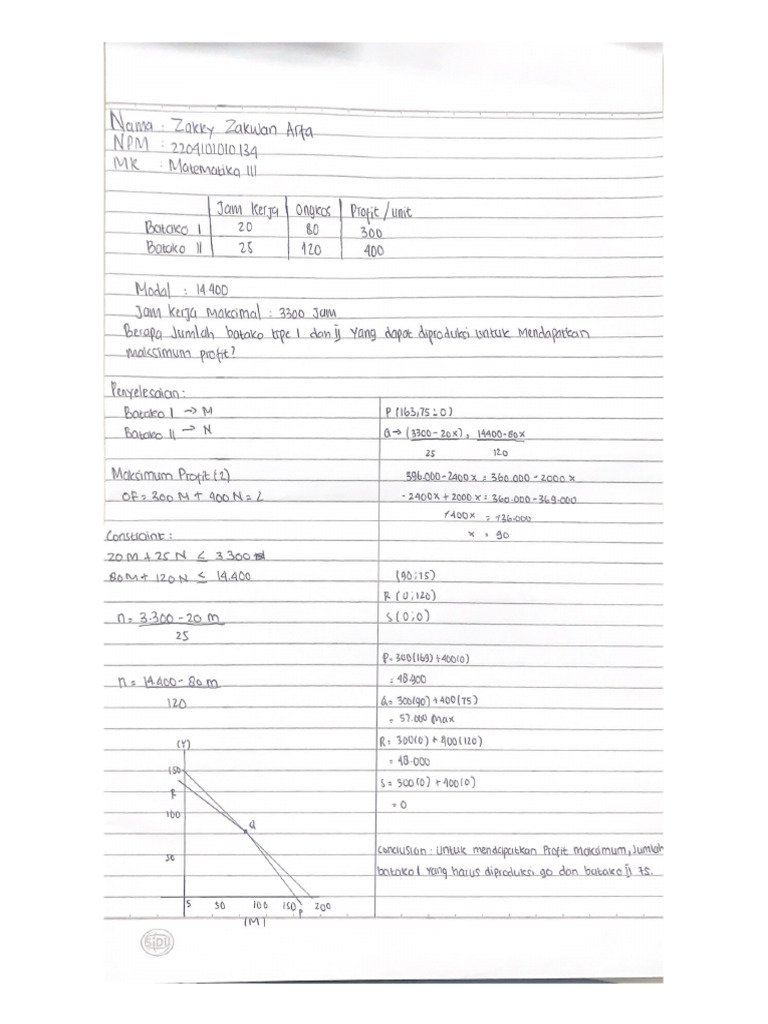 Nama : Zakky Zakwan Arfa
NPM : 2204101010134
MK : Matematika III
Jam Kerja Ongkos Profit/unit
Batako I 20 80 300
Batako II 25 120 400
Modal : 14.400
Jam Kerja Maksimal : 3300 Jam
Berapa Jumlah batako tipe I dan ij yang dapat diproduksi untuk Mendapatkan
maksimum profit?
Penyelesaian :
Batako I → M
Batako II → N
Maksimum Profit (2)
OF = 300 M + 400 N = Z
Constraint :
20 M + 25 N ≤ 3.300
80 M + 120 N ≤ 14.400
n = 3.300 - 20 m
25
n = 14.400 - 80 m
120
(Y)
150
R
100
Q
50
5 50 100 150 P 200
(M)
P (163,75 : 0)
Q → (3300 - 20x) , 14400 - 80x
25 120
396.000 - 2400x = 360.000 - 2000x
- 2400x + 2000x = 360.000 - 369.000
1400x = 136.000
x = 90
(90 ; 15)
R (0 ; 120)
S (0 ; 0)
P = 300(169) + 400(0)
= 48.900
Q = 300(90) + 400(75)
= 57.000 Max
R = 300(0) + 400(120)
= 48.000
S = 300(0) + 400(0)
= 0
Conclusion : Untuk mendapatkan Profit Maksimum, Jumlah
batako I yang harus diproduksi 90 dan batako ij 75.
SIDU